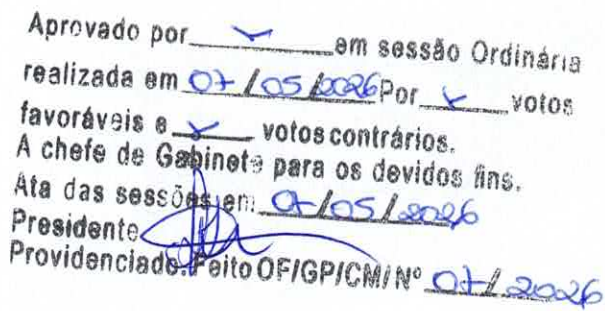 Aprovado por ✓ em sessão Ordinária
realizada em 07/05/2026 Por ✓ votos
favoráveis e ✓ votos contrários.
A chefe de Gabinete para os devidos fins.
Ata das sessões em 07/05/2026
Presidente
Providenciado. Feito OF/GP/CM/Nº 07/2026